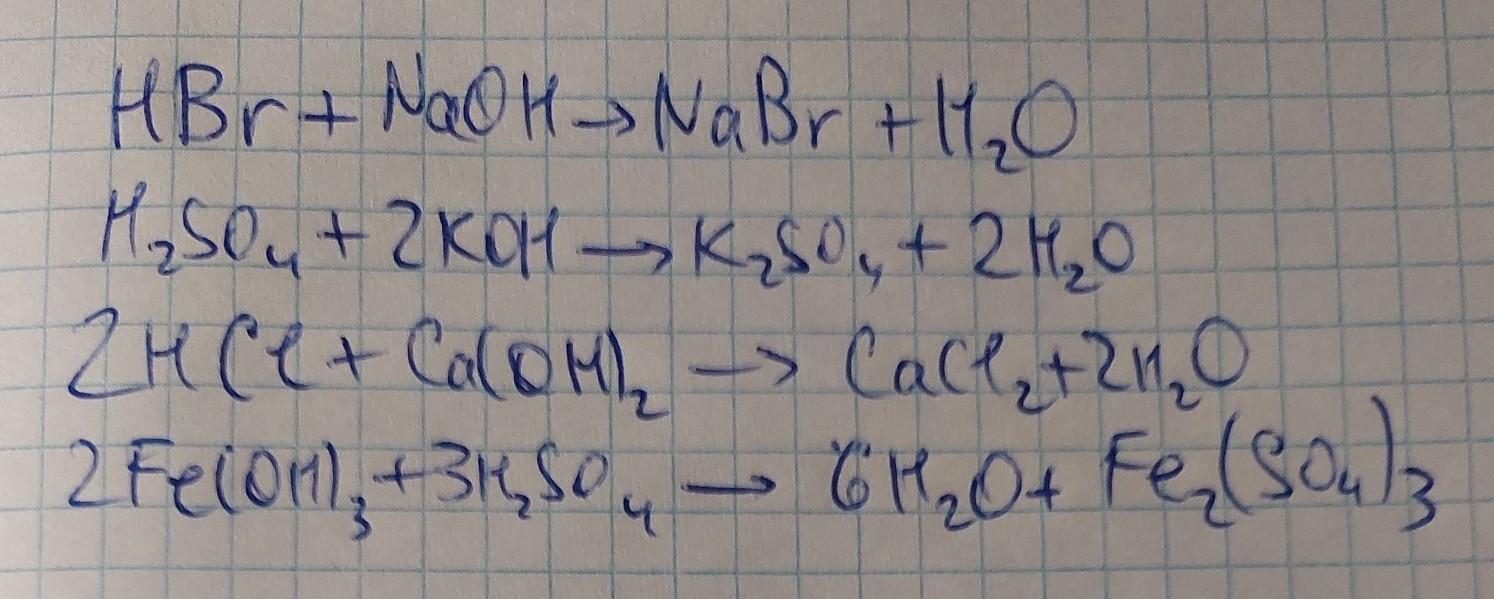 HBr + NaOH → NaBr + H₂O
H₂SO₄ + 2KOH → K₂SO₄ + 2H₂O
2HCl + Ca(OH)₂ → CaCl₂ + 2H₂O
2Fe(OH)₃ + 3H₂SO₄ → 6H₂O + Fe₂(SO₄)₃